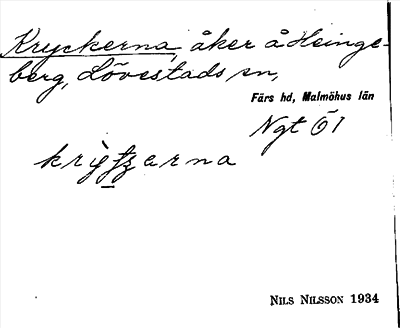 Kryckerna, åker å Heinge-
berg, Lövestads sn,
Färs hd, Malmöhus län
Ngt Ö1
NILS NILSSON 1934